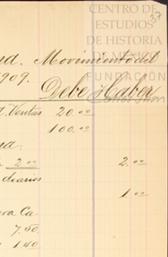 CENTRO DE
ESTUDIOS
DE HISTORIA
DE MÉXICO
FUNDACIÓN
Movimiento del
1909.
Debe Haber
Ventas 20.00
100.00
2.00 2.00
diarios
1.00
Ca-
7.50
1.40